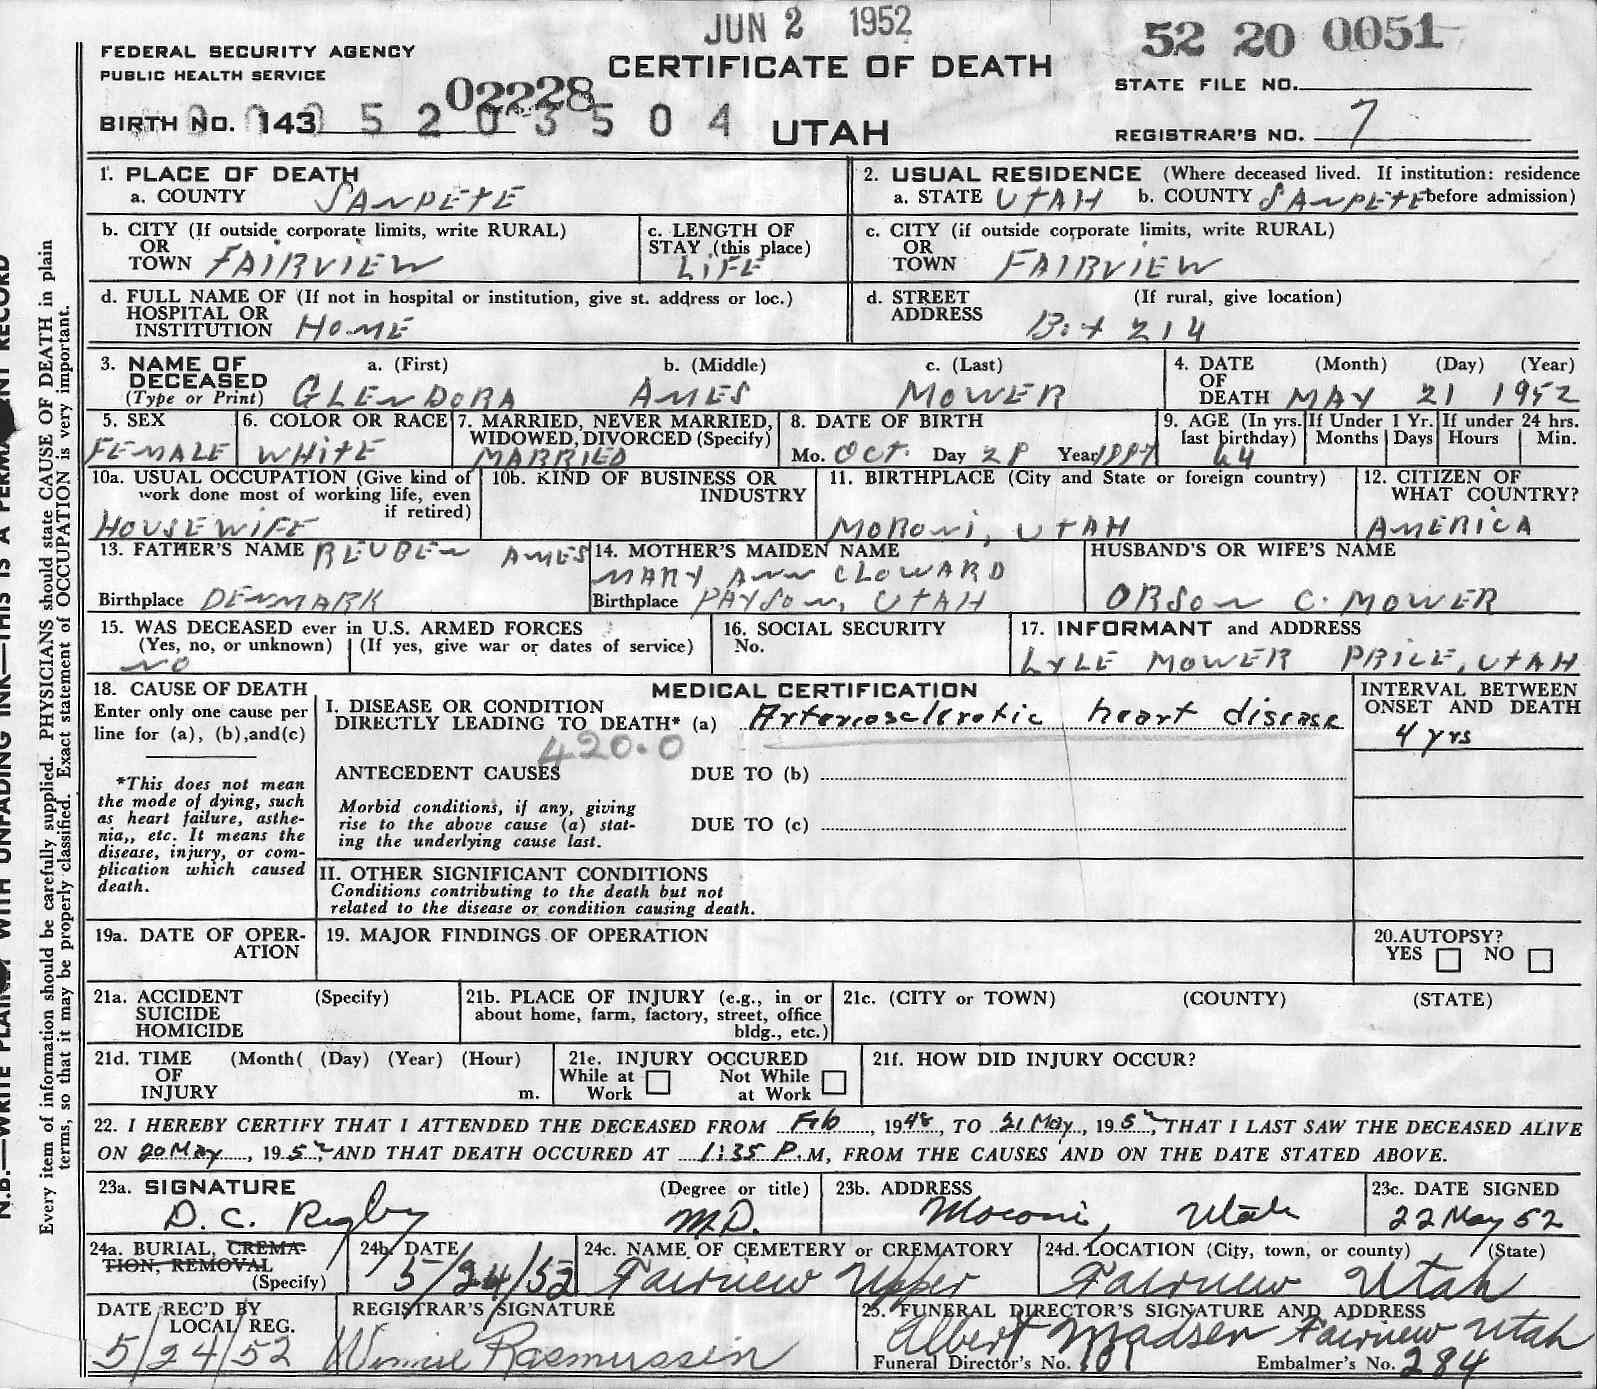 JUN 2 1952
52 20 0051
FEDERAL SECURITY AGENCY
PUBLIC HEALTH SERVICE
CERTIFICATE OF DEATH
STATE FILE NO.
02228
BIRTH NO. 143 5 2 0 3 5 0 4
UTAH
REGISTRAR'S NO. 7
1. PLACE OF DEATH
a. COUNTY SANPETE
2. USUAL RESIDENCE (Where deceased lived. If institution: residence
a. STATE UTAH b. COUNTY SANPETE before admission)
b. CITY (If outside corporate limits, write RURAL)
OR
TOWN FAIRVIEW
c. LENGTH OF
STAY (this place)
LIFE
c. CITY (if outside corporate limits, write RURAL)
OR
TOWN FAIRVIEW
d. FULL NAME OF (If not in hospital or institution, give st. address or loc.)
HOSPITAL OR
INSTITUTION HOME
d. STREET (If rural, give location)
ADDRESS
Box 214
3. NAME OF DECEASED
(Type or Print)
a. (First) b. (Middle) c. (Last)
GLENDORA AMES MOWER
4. DATE OF DEATH
(Month) (Day) (Year)
MAY 21 1952
5. SEX
FEMALE
6. COLOR OR RACE
WHITE
7. MARRIED, NEVER MARRIED,
WIDOWED, DIVORCED (Specify)
MARRIED
8. DATE OF BIRTH
Mo. OCT. Day 28 Year 1887
9. AGE (In yrs. last birthday)
64
If Under 1 Yr.
Months Days
If under 24 hrs.
Hours Min.
10a. USUAL OCCUPATION (Give kind of
work done most of working life, even
if retired)
HOUSEWIFE
10b. KIND OF BUSINESS OR
INDUSTRY
11. BIRTHPLACE (City and State or foreign country)
MORONI, UTAH
12. CITIZEN OF
WHAT COUNTRY?
AMERICA
13. FATHER'S NAME REUBEN AMES
Birthplace DENMARK
14. MOTHER'S MAIDEN NAME
MARY ANN CLOWARD
Birthplace PAYSON, UTAH
HUSBAND'S OR WIFE'S NAME
ORSON C. MOWER
15. WAS DECEASED ever in U.S. ARMED FORCES
(Yes, no, or unknown) (If yes, give war or dates of service)
NO
16. SOCIAL SECURITY
No.
17. INFORMANT and ADDRESS
LYLE MOWER PRICE, UTAH
18. CAUSE OF DEATH
Enter only one cause per
line for (a), (b),and(c)
*This does not mean
the mode of dying, such
as heart failure, asthe-
nia,, etc. It means the
disease, injury, or com-
plication which caused
death.
MEDICAL CERTIFICATION
I. DISEASE OR CONDITION
DIRECTLY LEADING TO DEATH* (a) Arteriosclerotic heart disease
420.0
ANTECEDENT CAUSES DUE TO (b)
Morbid conditions, if any, giving
rise to the above cause (a) stat-
ing the underlying cause last.
DUE TO (c)
INTERVAL BETWEEN
ONSET AND DEATH
4 yrs
II. OTHER SIGNIFICANT CONDITIONS
Conditions contributing to the death but not
related to the disease or condition causing death.
19a. DATE OF OPER-
ATION
19. MAJOR FINDINGS OF OPERATION
20.AUTOPSY?
YES NO
21a. ACCIDENT (Specify)
SUICIDE
HOMICIDE
21b. PLACE OF INJURY (e.g., in or
about home, farm, factory, street, office
bldg., etc.)
21c. (CITY or TOWN) (COUNTY) (STATE)
21d. TIME (Month( (Day) (Year) (Hour)
OF
INJURY m.
21e. INJURY OCCURED
While at Work Not While at Work
21f. HOW DID INJURY OCCUR?
22. I HEREBY CERTIFY THAT I ATTENDED THE DECEASED FROM Feb, 1948, TO 21 May, 1952, THAT I LAST SAW THE DECEASED ALIVE
ON 20 May, 1952, AND THAT DEATH OCCURED AT 1:35 P.M, FROM THE CAUSES AND ON THE DATE STATED ABOVE.
23a. SIGNATURE (Degree or title)
D. C. Rigby M.D.
23b. ADDRESS
Moroni, Utah
23c. DATE SIGNED
22 May 52
24a. BURIAL, CREMA-
TION, REMOVAL
(Specify)
24b. DATE
5/24/52
24c. NAME OF CEMETERY or CREMATORY
Fairview Upper
24d. LOCATION (City, town, or county) (State)
Fairview Utah
DATE REC'D BY
LOCAL REG.
5/24/52
REGISTRAR'S SIGNATURE
Winnie Rasmussen
25. FUNERAL DIRECTOR'S SIGNATURE AND ADDRESS
Albert Madsen Fairview Utah
Funeral Director's No. Embalmer's No. 284
N.B.—WRITE PLAINLY WITH UNFADING INK—THIS IS A PERMANENT RECORD
Every item of information should be carefully supplied. PHYSICIANS should state CAUSE OF DEATH in plain
terms, so that it may be properly classified. Exact statement of OCCUPATION is very important.